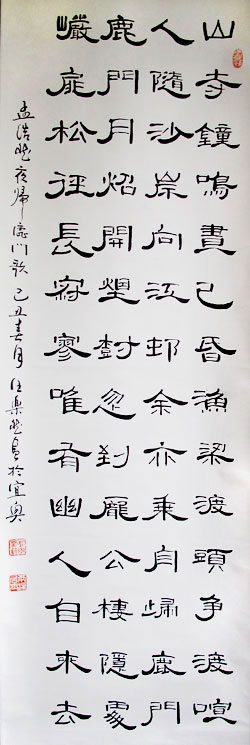 山寺鐘鳴晝已昏漁梁渡頭爭渡喧
人隨沙岸向江邨余亦乘舟歸鹿門
鹿門月炤開煙樹忽到龐公棲隱處
巖扉松徑長寂寥唯有幽人自來去
孟浩然夜歸鹿門歌己丑春月於宜